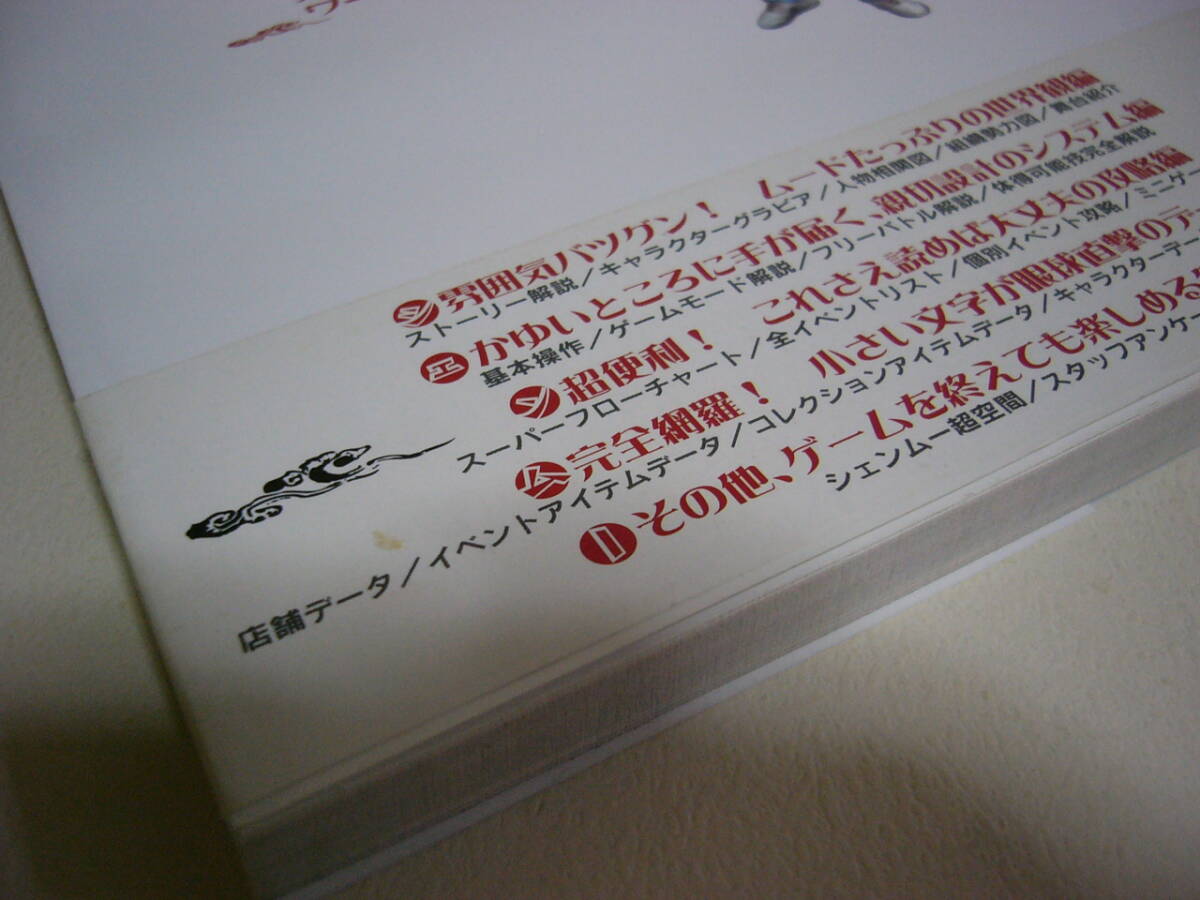 シ 雰囲気バツグン! ムードたっぷりの世界観編
ストーリー解説/キャラクターグラビア/人物相関図/組織勢力図/舞台紹介
エ かゆいところに手が届く、親切設計のシステム編
基本操作/ゲームモード解説/フリーバトル解説/体得可能技完全解説
ン 超便利! これさえ読めば大丈夫の攻略編
スーパーフローチャート/全イベントリスト/個別イベント攻略/ミニゲー
ム 完全網羅! 小さい文字が眼球直撃のデー
店舗データ/イベントアイテムデータ/コレクションアイテムデータ/キャラクターデー
II その他、ゲームを終えても楽しめる
シェンムー超空間/スタッフアンケー